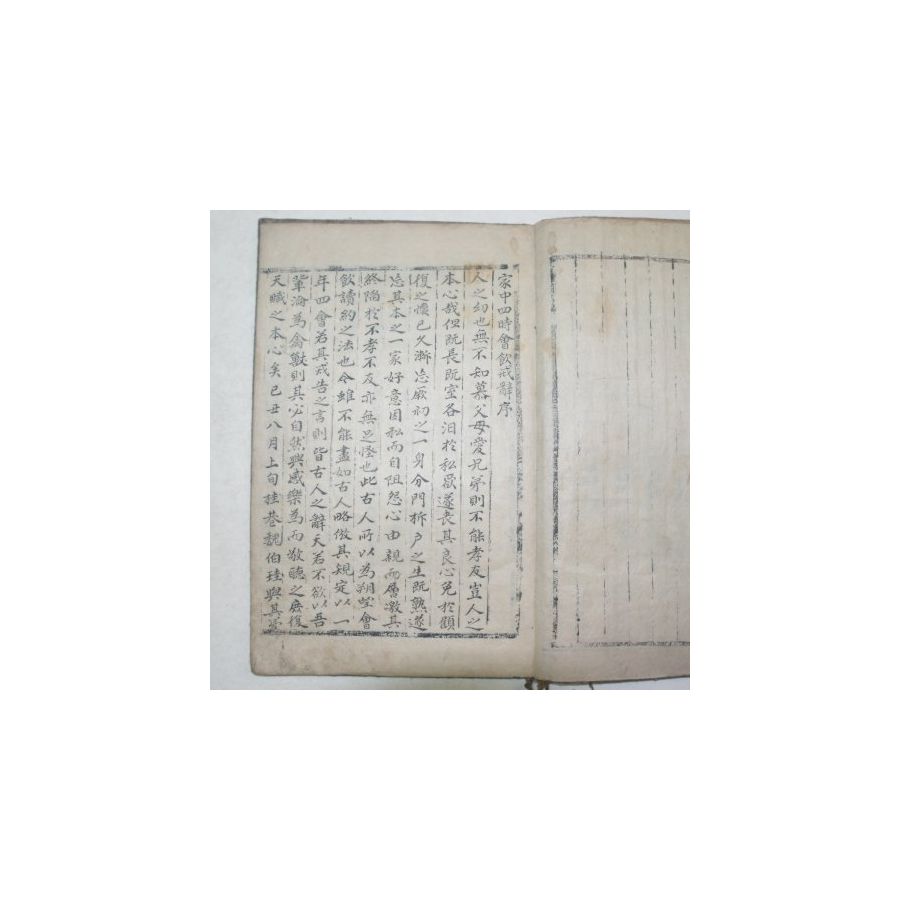 家中四時會飮戒辭序
人之幼也無不知慕父母愛兄弟則不能孝友豈人之
本心哉但旣長旣室各汨於私欲遂喪其良心免於顧
復之懷已久漸忘厥初之一身分門柝戶之生旣熟遂
忘其本之一家好意因私而自阻怨心由親而層激其
終陷於不孝不友亦無足怪也此古人所以為朔望會
飮讀約之法也今雖不能盡如古人略倣其規定以一
年四會若其戒告之言則皆古人之辭天若不欲以吾
輩淪為禽獸則其必自然興感樂為而敬聽之庶復
天賦之本心矣己丑八月上旬桂巷魏伯珪與其